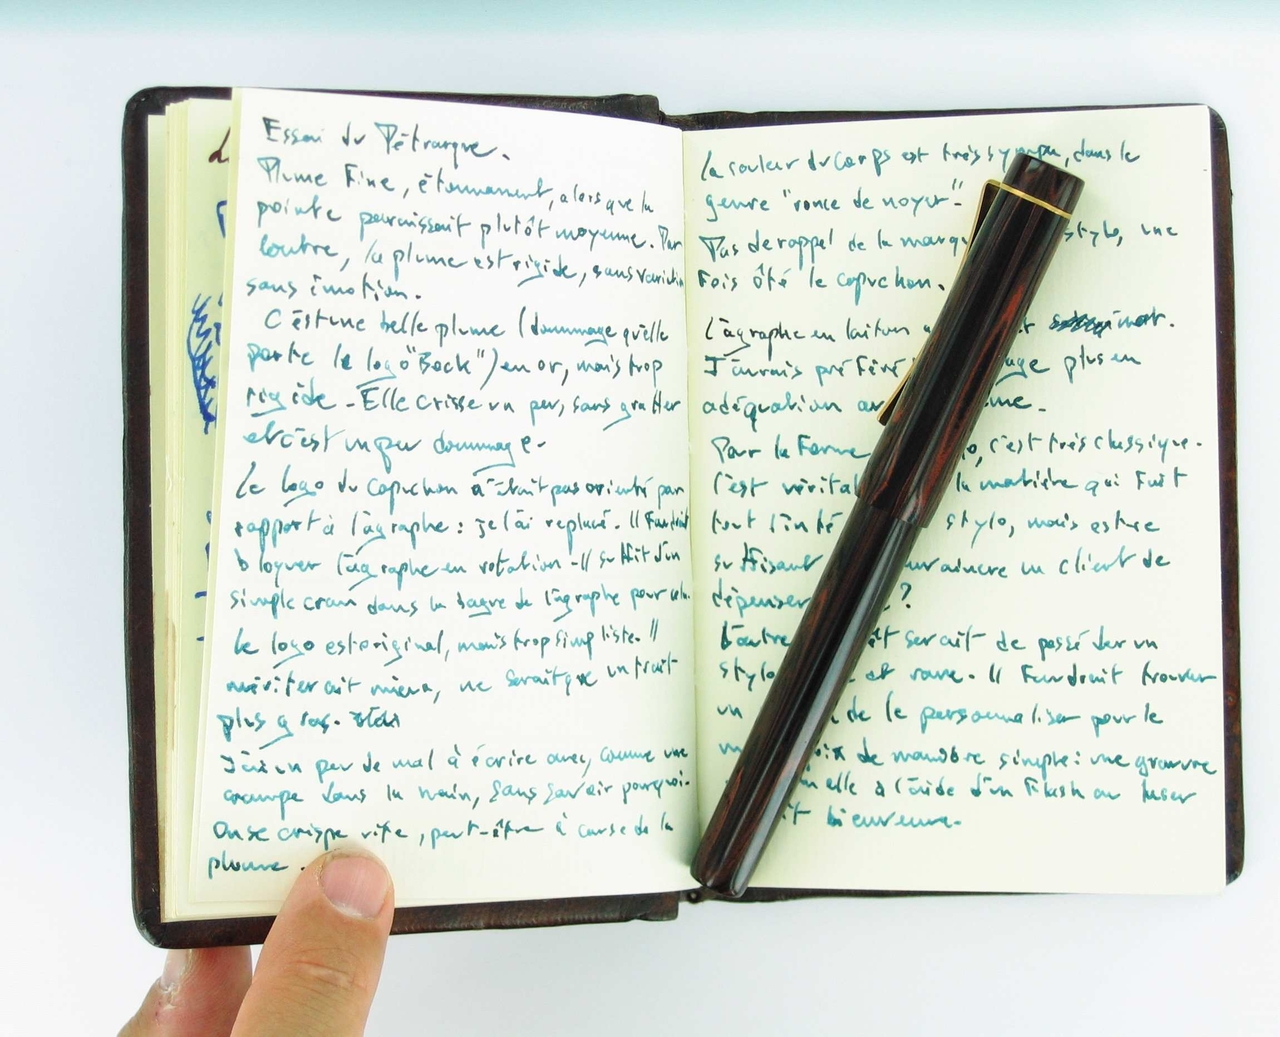 Essai du Pétrarque.
Plume Fine, étonnamment, alors que la
pointe paraissait plutôt moyenne. Par
contre, la plume est rigide, sans variation
sans émotion.
C'est une belle plume (dommage qu'elle
porte le logo "Bock") en or, mais trop
rigide - Elle crisse un peu, sans gratter
et c'est un peu dommage.
Le logo du capuchon n'était pas orienté par
rapport à l'agraphe : je l'ai replacé. Il faudrait
bloquer l'agraphe en rotation - Il suffit d'un
simple cran dans la bague de l'agraphe pour cela.
Le logo est original, mais trop simpliste. Il
mériterait mieux, ne serait que un trait
plus gras.
J'ai un peu de mal à écrire avec, comme une
crampe dans la main, sans savoir pourquoi.
On se crispe vite, peut-être à cause de la
plume.
La couleur du corps est très sympa, dans le
genre "ronce de noyer".
Pas de rappel de la marq stylo, une
Fois ôté le capuchon.
L'agraphe en laiton
J'aurais préféré age plus en
adéquation
Par la Forme c'est très classique.
C'est la matière qui Fait
tout l'inté stylo, mais est-ce
suffisant un client de
dépenser ?
L'autre serait de posséder un
stylo et rare. Il Faudrait trouver
un de le personnaliser pour le
de manière simple : une gravure
elle à l'aide d'un Flash au laser
it bienvenue.